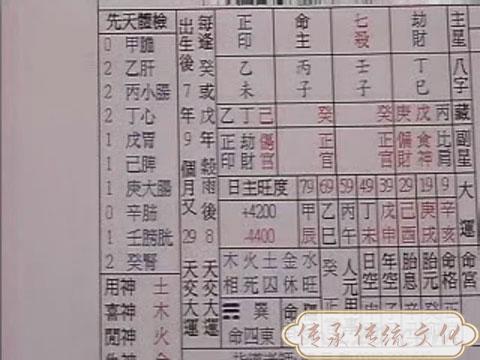 先天體檢
0 甲膽
2 乙肝
2 丙小腸
2 丁心
1 戊胃
1 己脾
1 庚大腸
0 辛肺
1 壬膀胱
2 癸腎
用神 土
喜神 木
閒神 火
每逢癸或戊年穀雨後8天交大運
出生後7年9個月又29天交大運
正印 命主 七殺 劫財 主星
乙未 丙子 壬子 丁巳 八字
乙丁己 癸 癸 庚戊丙 藏
正印 劫財 傷官 正官 正官 偏財 食神 比肩 副星
日主旺度 79 69 59 49 39 29 19 9 大運
+4200
-4400
甲辰 乙巳 丙午 丁未 戊申 己酉 庚戌 辛亥
木相 火死 土囚 金休 水旺
人元用
日空 年空 胎息 胎元 命格 命宮
☴ 巽
命四東
傳承傳統文化